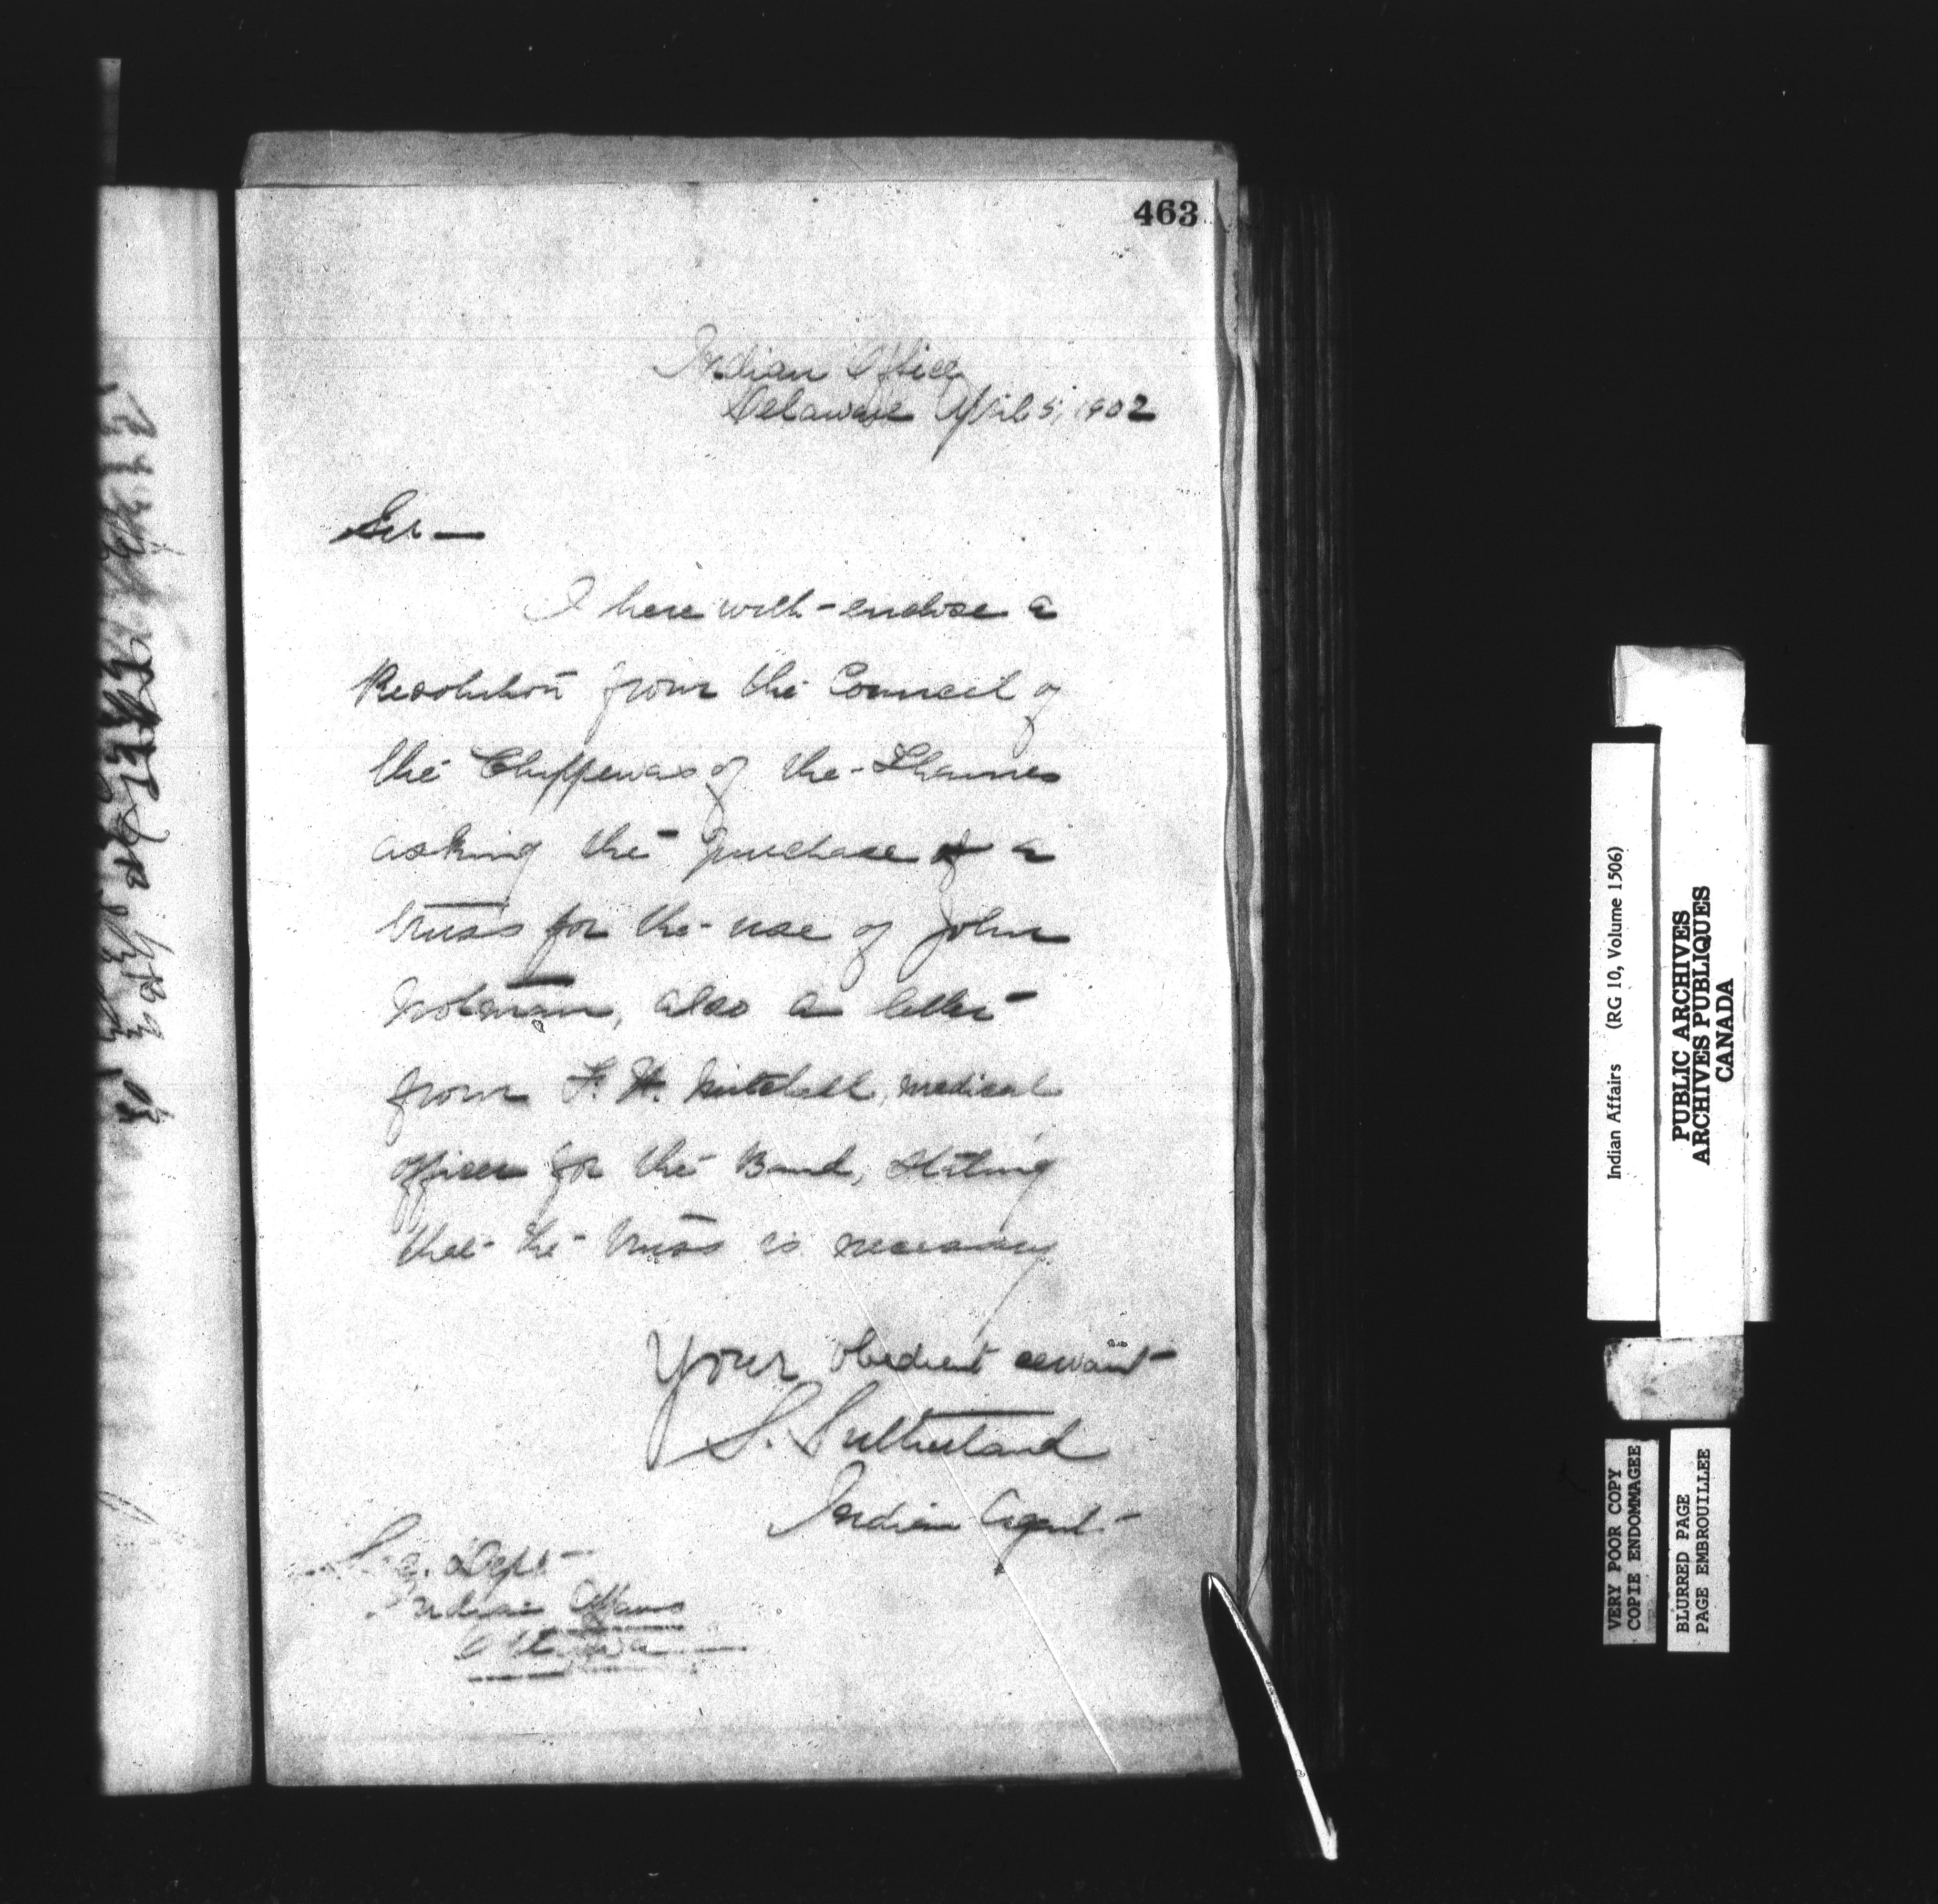 463
Indian Office
Delaware April 5, 1902
Sir —
I here with - enclose a
Resolution from the Council of
the Chippewas of the - Thames
asking the purchase of a
truss for the - use of John
also a letter
from F. H. Mitchell, medical
officer for the Band, stating
that - the - truss is necessary
Your obedient servant -
S. Sutherland
Indian Agent -
Sec. Dept -
Indian Affairs
Ottawa
Indian Affairs (RG 10, Volume 1506)
PUBLIC ARCHIVES
ARCHIVES PUBLIQUES
CANADA
VERY POOR COPY
COPIE ENDOMMAGEE
BLURRED PAGE
PAGE EMBROUILLEE